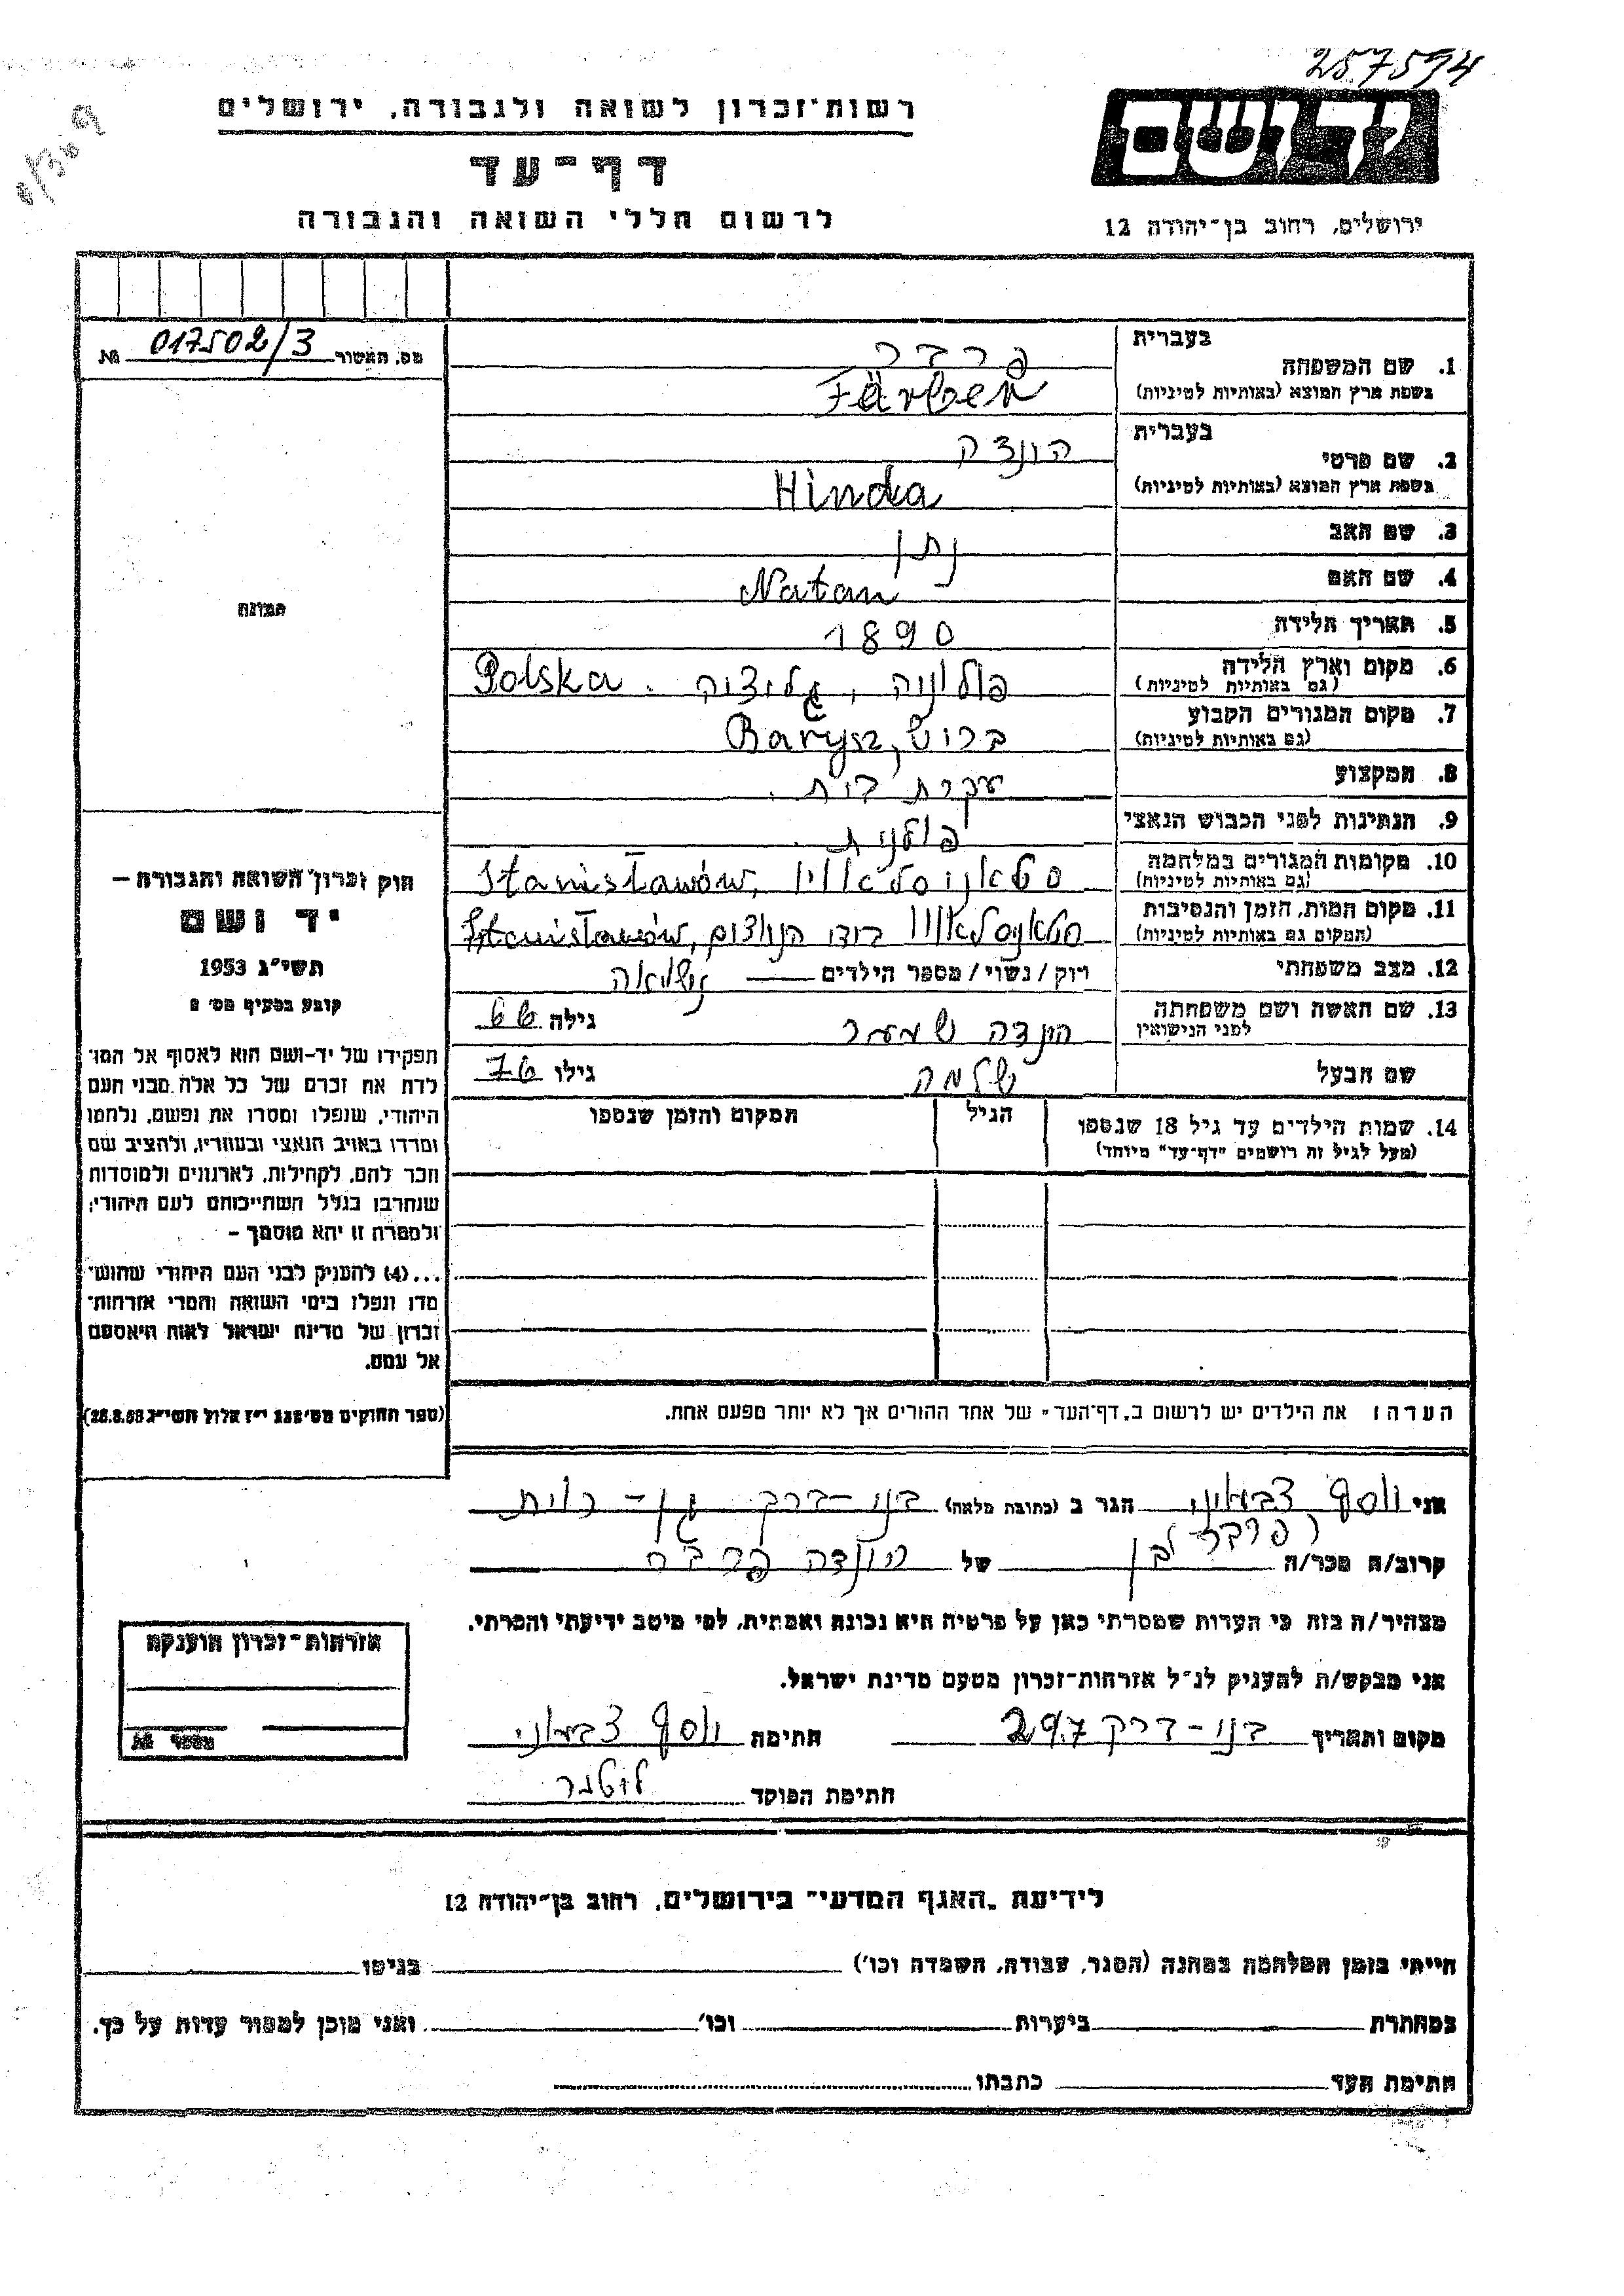 257594
רשות־זכרון לשואה ולגבורה, ירושלים
דף־עד
לרשום חללי השואה והגבורה
יד ושם
ירושלים, רחוב בן־יהודה 12
מס. האשור 017502/3 №
תמונה
חוק זכרון השואה והגבורה —
יד ושם
תשי״ג 1953
קובע בסעיף מס׳ 2
תפקידו של יד-ושם הוא לאסוף אל המו־
לדת את זכרם של כל אלה מבני העם
היהודי, שנפלו ומסרו את נפשם, נלחמו
ומרדו באויב הנאצי ובעוזריו, ולהציב שם
וזכר להם, לקהילות, לארגונים ולמוסדות
שנחרבו בגלל השתייכותם לעם היהודי;
ולמטרה זו יהא מוסמך –
...(4) להעניק לבני העם היהודי שהוש־
מדו ונפלו בימי השואה והמרי אזרחות־
זכרון של מדינת ישראל לאות היאספם
אל עמם.
(ספר החוקים מס׳ 132 י״ז אלול תשי״ג 28.8.53)
בעברית פרבר
1. שם המשפחה
בשפת ארץ המוצא (באותיות לטיניות) Färber
בעברית הינדה
2. שם פרטי
בשפת ארץ המוצא (באותיות לטיניות) Hinda
3. שם האב נתן
4. שם האם Natan
5. תאריך הלידה 1890
6. מקום וארץ הלידה פולניה, גליציה. Polska
(גם באותיות לטיניות)
7. מקום המגורים הקבוע בריש, Barysz
(גם באותיות לטיניות)
8. המקצוע עקרת בית.
9. הנתינות לפני הכבוש הנאצי פולנית.
10. מקומות המגורים במלחמה סטאניסלאוו Stanisławów,
(גם באותיות לטיניות)
11. מקום המות, הזמן והנסיבות סטאניסלאוו בידי הנאצים, Stanisławów
(המקום גם באותיות לטיניות)
12. מצב משפחתי רוק / נשוי / מספר הילדים נשואה
13. שם האשה ושם משפחתה הינדה גילה
לפני הנישואין
שם הבעל שלמה גילו
14. שמות הילדים עד גיל 18 שנספו הגיל המקום והזמן שנספו
(מעל לגיל זה רושמים "דף־עד" מיוחד)
הערה: את הילדים יש לרשום ב„דף־העד" של אחד ההורים אך לא יותר מפעם אחת.
אני יוסף צבעוני הגר ב (כתובת מלאה) בני-דרק גן-
(פרבר)
קרוב/ה מכר/ה בן של הינדה פרבר
מצהיר/ה בזה כי העדות שמסרתי כאן על פרטיה היא נכונה ואמתית, לפי מיטב ידיעתי והכרתי.
אני מבקש/ת להעניק לנ״ל אזרחות־זכרון מטעם מדינת ישראל.
מקום ותאריך בני-דרק חתימה יוסף צבעוני
חתימת הפוקד
אזרחות־זכרון הוענקה
מספר №
לידיעת „האגף המדעי" בירושלים, רחוב בן־יהודה 12
חייתי בזמן המלחמה במחנה (הסגר, עבודה, השמדה וכו׳) בגיטו
במחתרת ביערות וכו׳ ואני מוכן למסור עדות על כך.
חתימת העד כתבתו